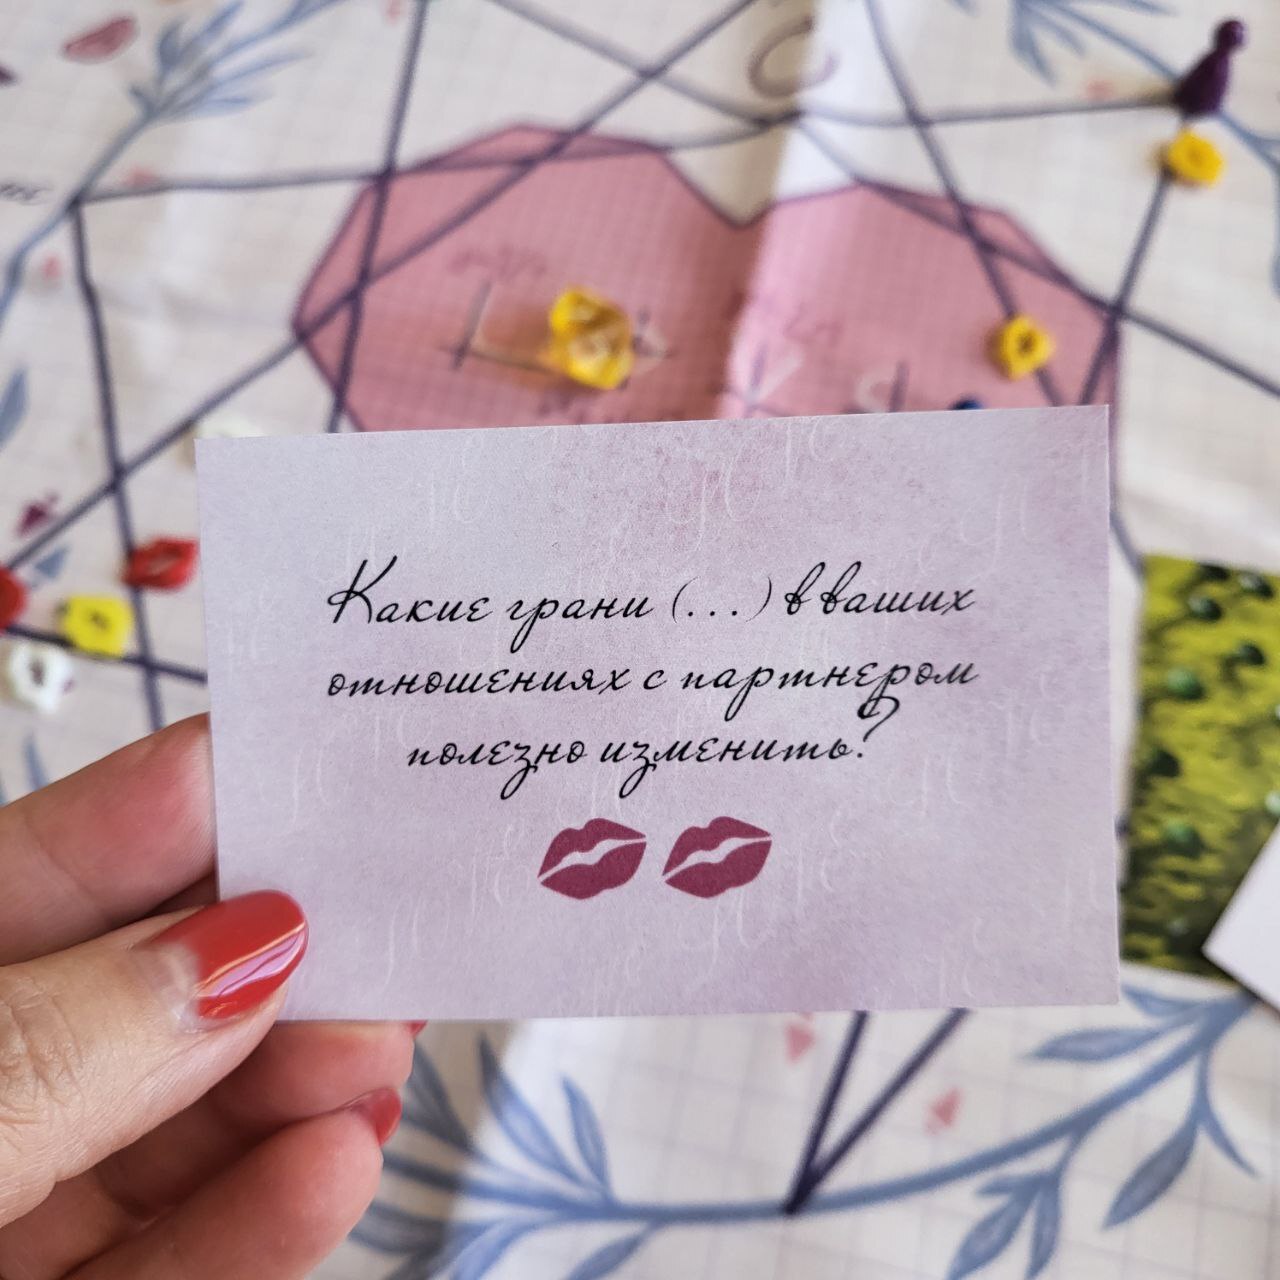 Какие грани (...) в ваших
отношениях с партнером
полезно изменить?